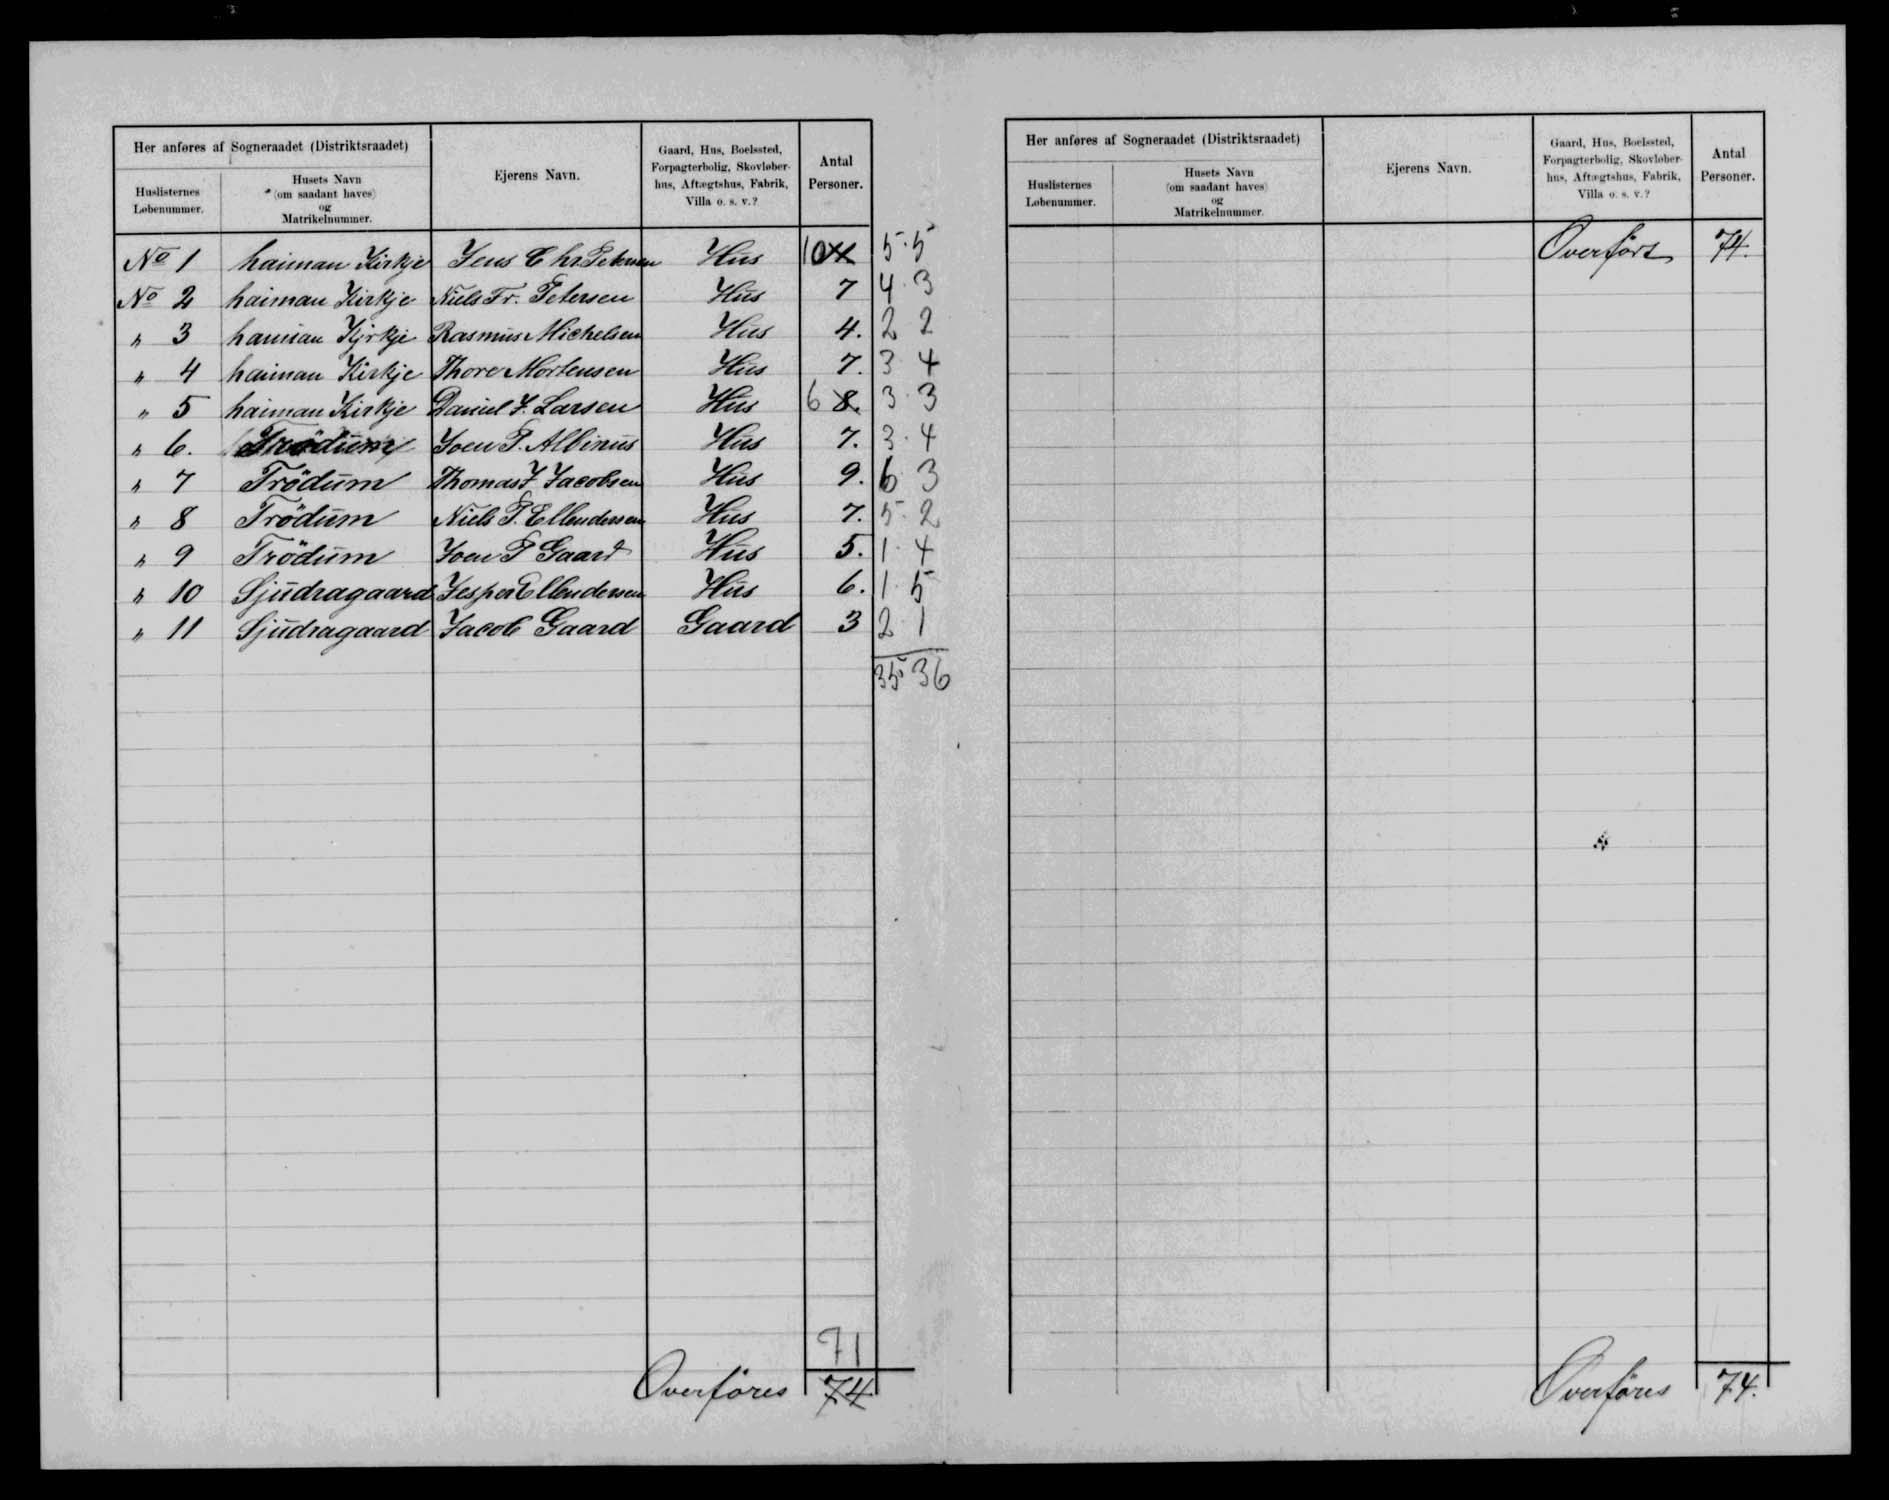 Her anføres af Sogneraadet (Distriktsraadet)
Huslisternes Løbenummer.
Husets Navn (om saadant haves) og Matrikelnummer.
Ejerens Navn.
Gaard, Hus, Boelssted, Forpagterbolig, Skovløberhus, Aftægtshus, Fabrik, Villa o. s. v.?
Antal Personer.
No 1 haiman Kirkje Jens Chr Petersen Hus 10 5·5
No 2 haiman Kirkje Niels Fr. Petersen Hus 7 4·3
" 3 haiman Kjrkje Rasmus Michelsen Hus 4. 2 2
" 4 haiman Kirkje Thore Mortensen Hus 7. 3·4
" 5 haiman Kirkje Daniel J. Larsen Hus 6 8. 3·3
" 6. Trödum Joen P. Albinus Hus 7. 3·4
" 7 Trödum Thomas J Jacobsen Hus 9. 6 3
" 8 Trödum Niels P. Ellendersen Hus 7. 5·2
" 9 Trödum Joen P Gaard Hus 5. 1·4
" 10 Sjudragaard Jesper Ellendersen Hus 6. 1·5
" 11 Sjudragaard Jacob Gaard Gaard 3 2 1
35 36
71
Overföres 74
Her anføres af Sogneraadet (Distriktsraadet)
Huslisternes Løbenummer.
Husets Navn (om saadant haves) og Matrikelnummer.
Ejerens Navn.
Gaard, Hus, Boelssted, Forpagterbolig, Skovløberhus, Aftægtshus, Fabrik, Villa o. s. v.?
Antal Personer.
Overført 74.
Overföres 74.